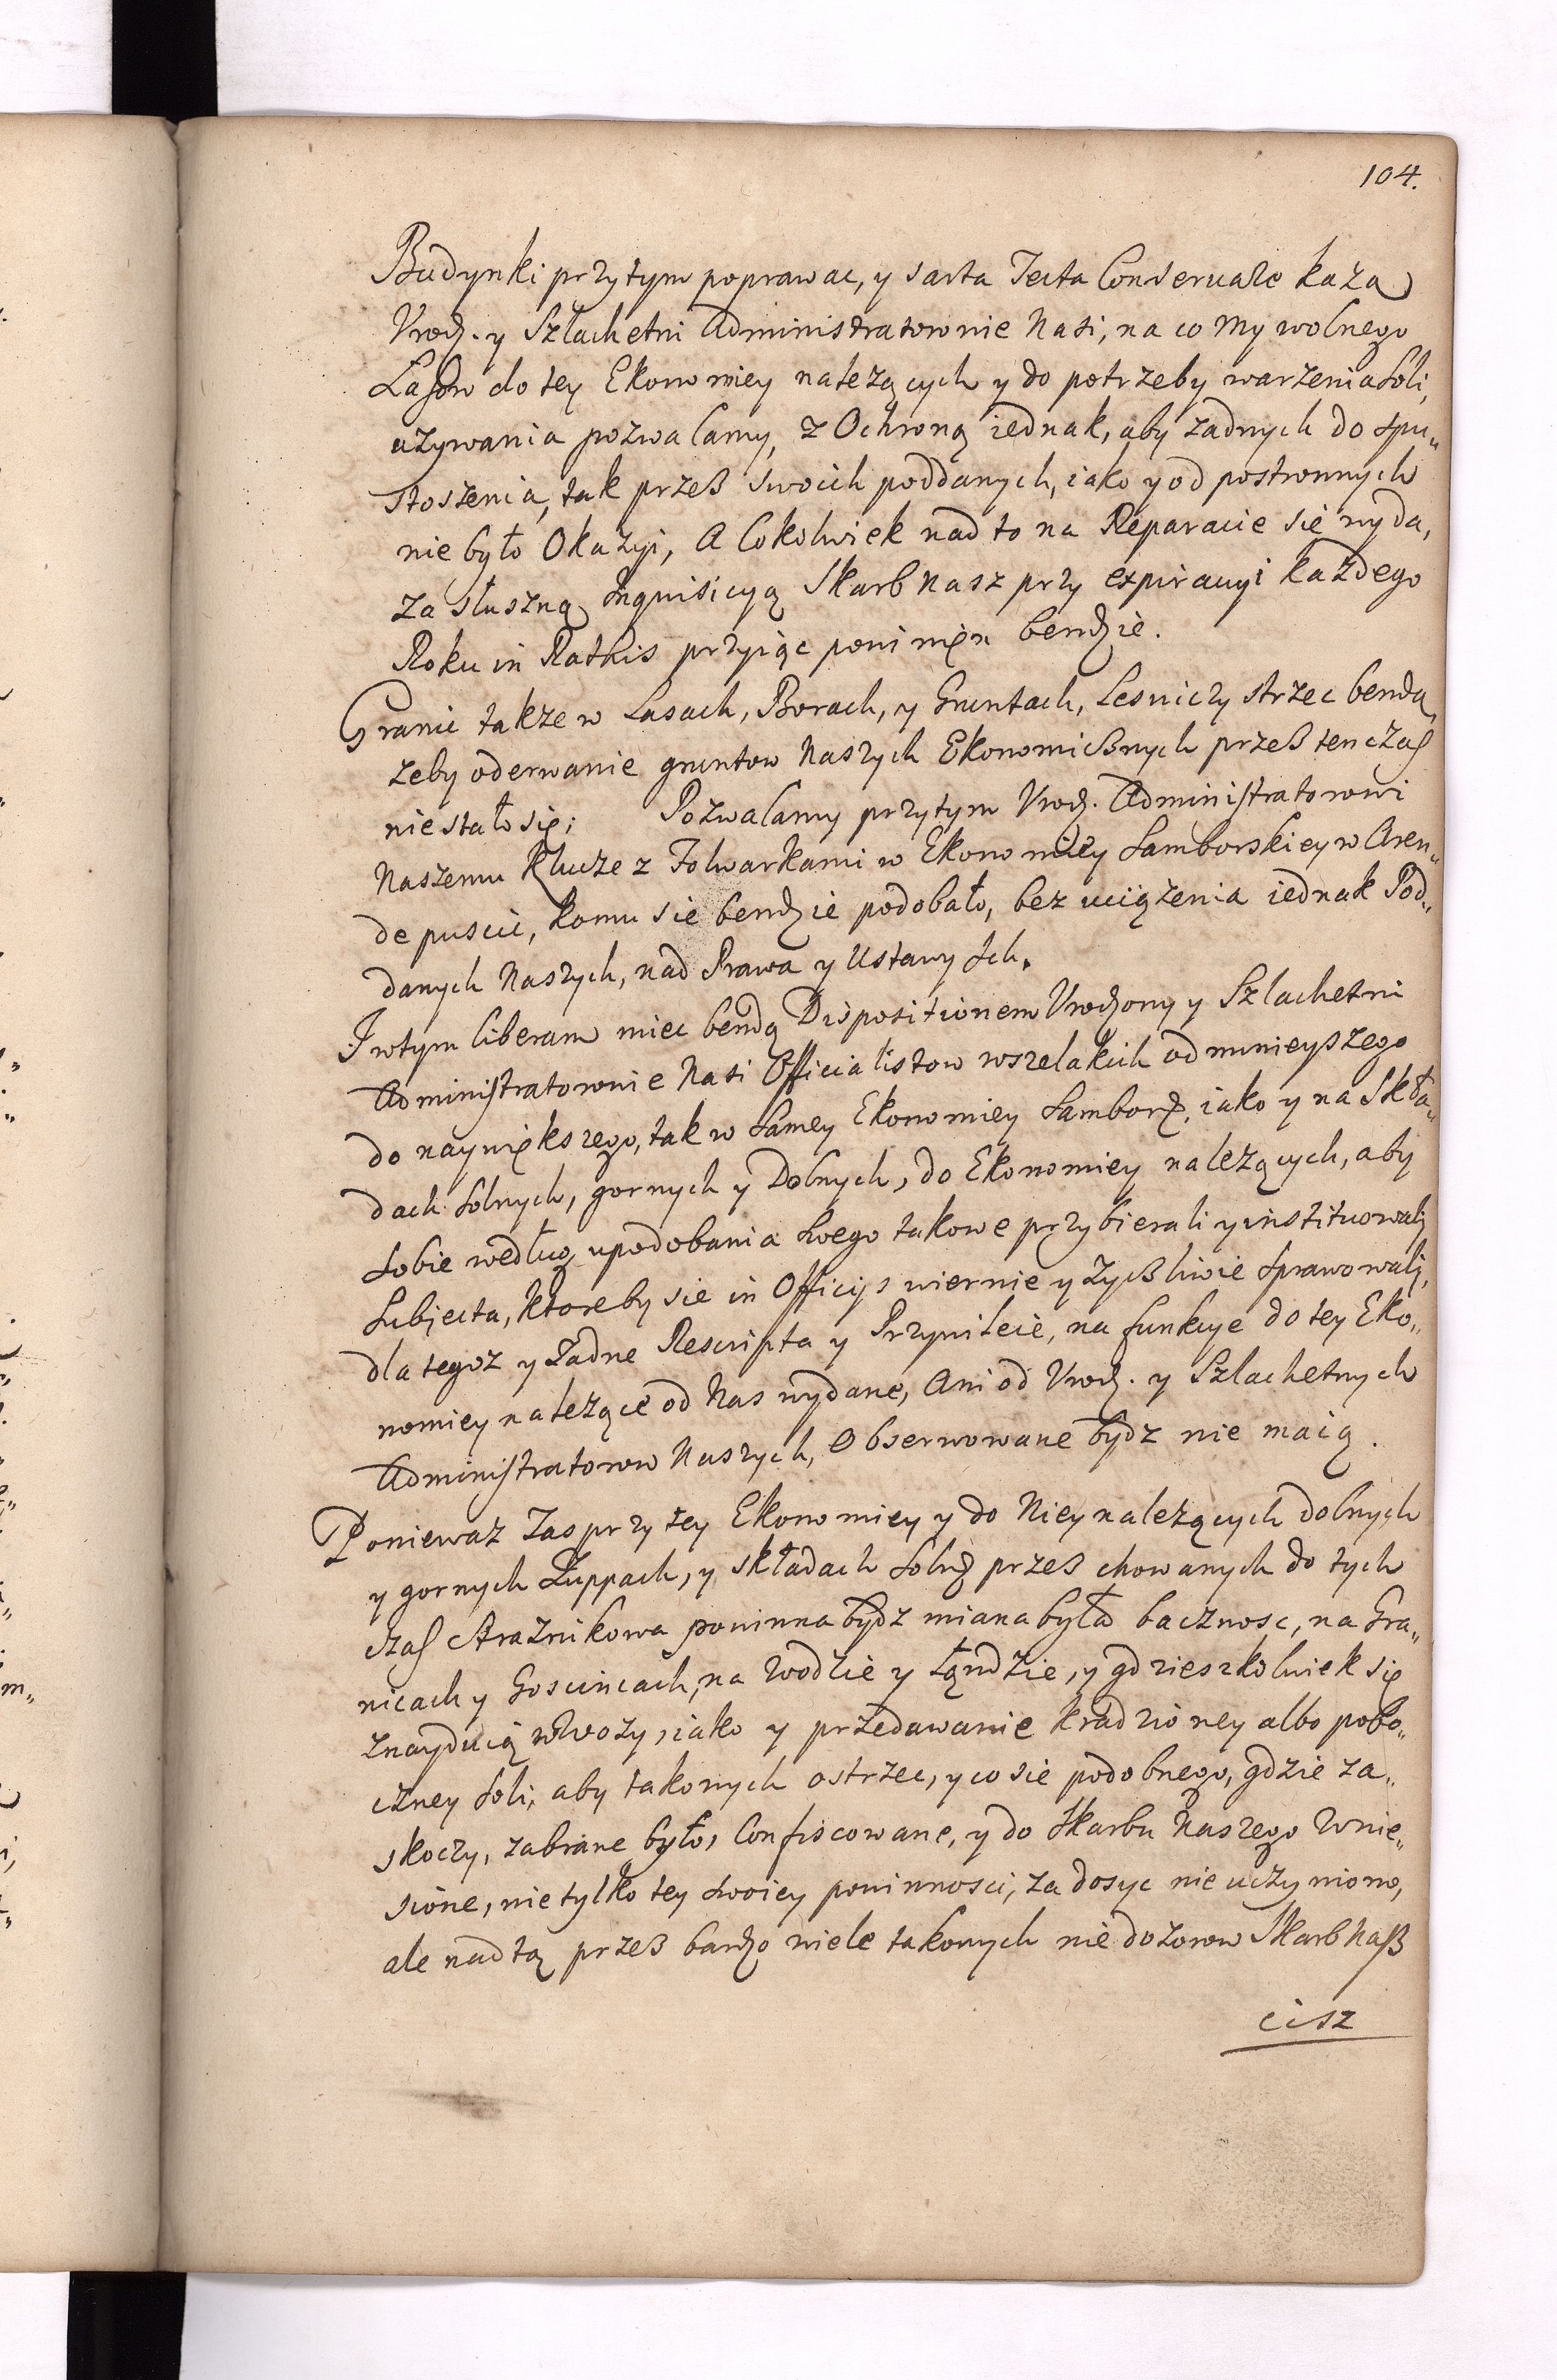 104.
Budynki przytym poprawac, y sarta Tecta Conservare kaza
Vrodz. y Szlachetni Administratorowie Nasi, na co My wolnego
Lasow do tey Ekonomiey nalezących y do potrzeby warzenia Soli,
uzywania pozwalamy, z Ochroną iednak, aby zadnych do spu„
stoszenia, tak przeß swoich poddanych, iako y od postronnych
nie było Okazyi, A Cokolwiek nad to na Reparacie się wyda,
za słuszną Inquisicyą Skarb Nasz przy expiracyi kazdego
Roku in Rathis przyiąc powinien bendzie.
Granic takze w Lasach, Borach, y Gruntach, Lesniczy strzec bendą,
zeby oderwanie gruntow Naszych Ekonomicßnych przeß ten czas
nie stało się; Pozwalamy przytym Vrodz. Administratorowi
Naszemu Klucze z Folwarkami w Ekonomiey Samborskiey w Aren„
de puscic, komu sie bendzie podobało, bez uciązenia iednak Pod„
danych Naszych, nad Prawa y Ustawy Ich.
I wtym liberam miec bendą Dispositionem Vrodzony y Szlachetni
Administratorowie Nasi Officialistow wszelakich od mnieyszego
do naywiększego, tak w Samey Ekonomiey Samborz. iako y na Skła„
dach Solnych, gornych y Dolnych, do Ekonomiey nalezących, aby
Sobie według upodobania Swego takowe przybierali y instituowali
Subjecta, ktoreby sie in Officijs wiernie y zycßliwie Sprawowali,
dla tegoz y Zadne Rescripta y Przywileie, na funkcye do tey Eko„
nomiey nalezące od Nas wydane, Ani od Vrodz. y Szlachetnych
Administratorow Naszych, Observowane bydz nie maią.
Poniewaz Zas przy tey Ekonomiey y do Niey nalezących dolnych
y gornych Zuppach, y składach Solnych przes chowanych do tych
czas Straznikowa powinna bydz miana była bacznosc, na Gra„
nicach y Goscincach, na Wodzie y Lądzie, y gdzieszkolwiek się
znayduią wwozy, iako y przedawanie kradzioney albo pobo„
czney Soli, aby takowych ostrzec, y co sie podobnego, gdzie za„
skoczy, zabrane było, Confiscowane, y do Skarbu Naszego Wnie„
sione, nie tylko tey swoiey powinnosci, za dosyc nie uczyniono,
ale nad tą przeß bardzo wiele takowych nie dozorow Skarb Naß
cisz